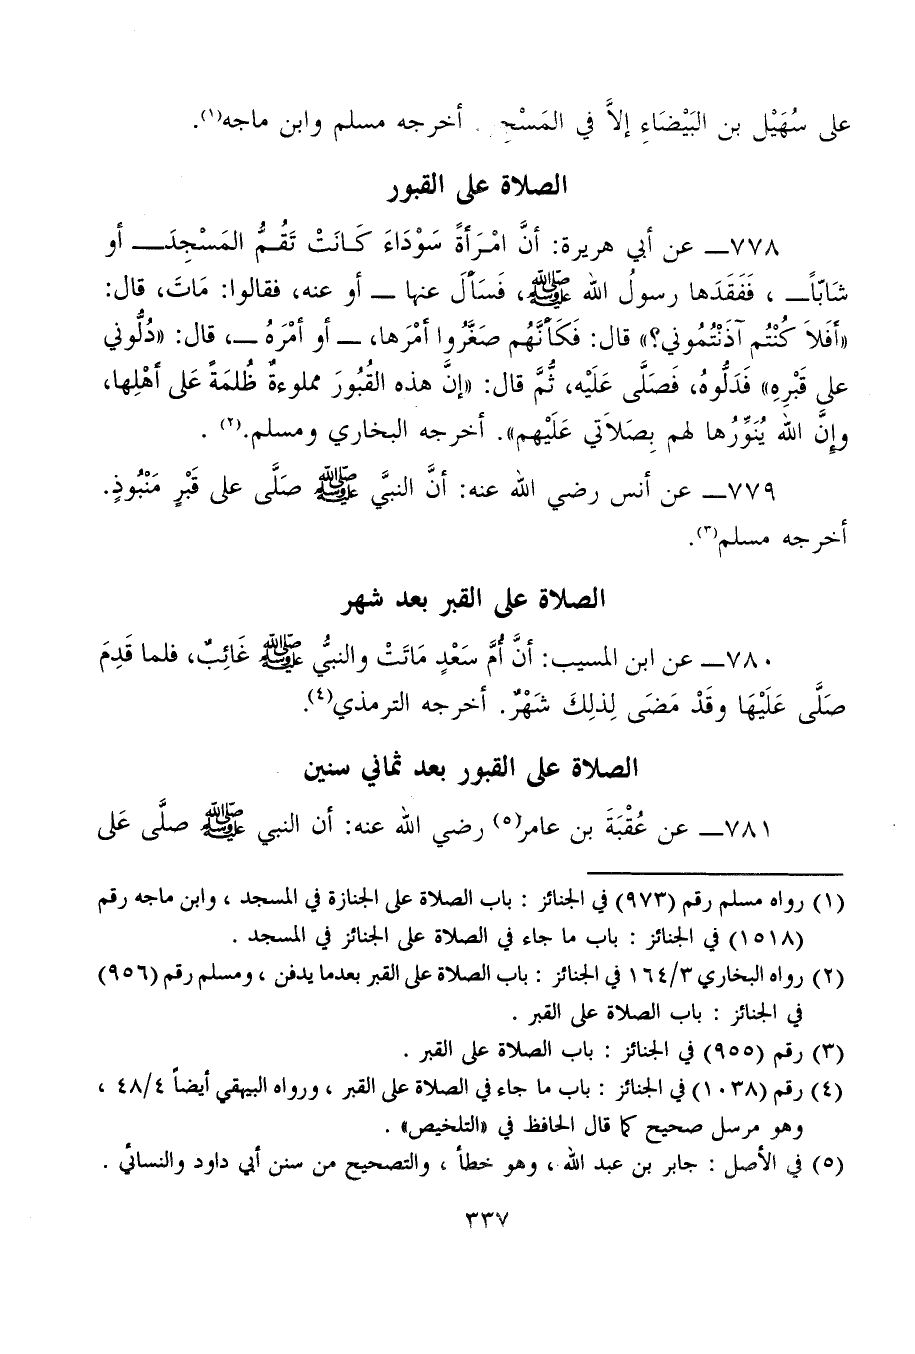 على سُهَيْل بن البَيْضَاءِ إلاَّ في المَسْجِ . أخرجه مسلم وابن ماجه(١).
الصلاة على القبور
٧٧٨ـ عن أبي هريرة: أنَّ امْرَأةً سَوْدَاءَ كَانَتْ تَقُمُّ المَسْجِدَــ أو
شَابّاًــ ، فَفَقَدَها رسولُ الله ﷺ، فَسَألَ عنها ــ أو عنه، فقالوا: مَاتَ، قال:
«أفَلاَ كُنْتُم آذَنْتُمُوني؟» قال: فَكَأنَّهُم صَغَّرُوا أمْرَها، ــ أو أمْرَهُ ــ، قال: «دُلُّوني
على قَبْرِهِ» فَدَلُّوهُ، فَصَلَّى عَلَيْه، ثُمَّ قال: «إنَّ هذه القُبُورَ مملوءةٌ ظُلمَةً عَلى أهْلِها،
وإنَّ الله يُنَوِّرُها لهم بِصَلاَتي عَلَيْهم». أخرجه البخاري ومسلم.(٢) .
٧٧٩ــ عن أنس رضي الله عنه: أنَّ النبيَّ ﷺ صَلَّى على قَبْرٍ مَنْبُوذٍ.
أخرجه مسلم(٣).
الصلاة على القبر بعد شهر
٧٨٠ــ عن ابن المسيب: أنَّ أُمَّ سَعْدٍ مَاتَتْ والنبيُّ ﷺ غَائِبٌ، فلما قَدِمَ
صَلَّى عَلَيْهَا وقَدْ مَضَى لِذلِكَ شَهْرٌ. أخرجه الترمذي(٤).
الصلاة على القبور بعد ثماني سنين
٧٨١ــ عن عُقْبَةَ بن عامر(٥) رضي الله عنه: أن النبي ﷺ صلَّى عَلى
(١) رواه مسلم رقم (٩٧٣) في الجنائز : باب الصلاة على الجنازة في المسجد ، وابن ماجه رقم
(١٥١٨) في الجنائز : باب ما جاء في الصلاة على الجنائز في المسجد .
(٢) رواه البخاري ١٦٤/٣ في الجنائز : باب الصلاة على القبر بعدما يدفن ، ومسلم رقم (٩٥٦)
في الجنائز : باب الصلاة على القبر .
(٣) رقم (٩٥٥) في الجنائز : باب الصلاة على القبر .
(٤) رقم (١٠٣٨) في الجنائز : باب ما جاء في الصلاة على القبر ، ورواه البيهقي أيضاً ٤٨/٤ ،
وهو مرسل صحيح كما قال الحافظ في «التلخيص» .
(٥) في الأصل : جابر بن عبد الله ، وهو خطأ ، والتصحيح من سنن أبي داود والنسائي .
٣٣٧